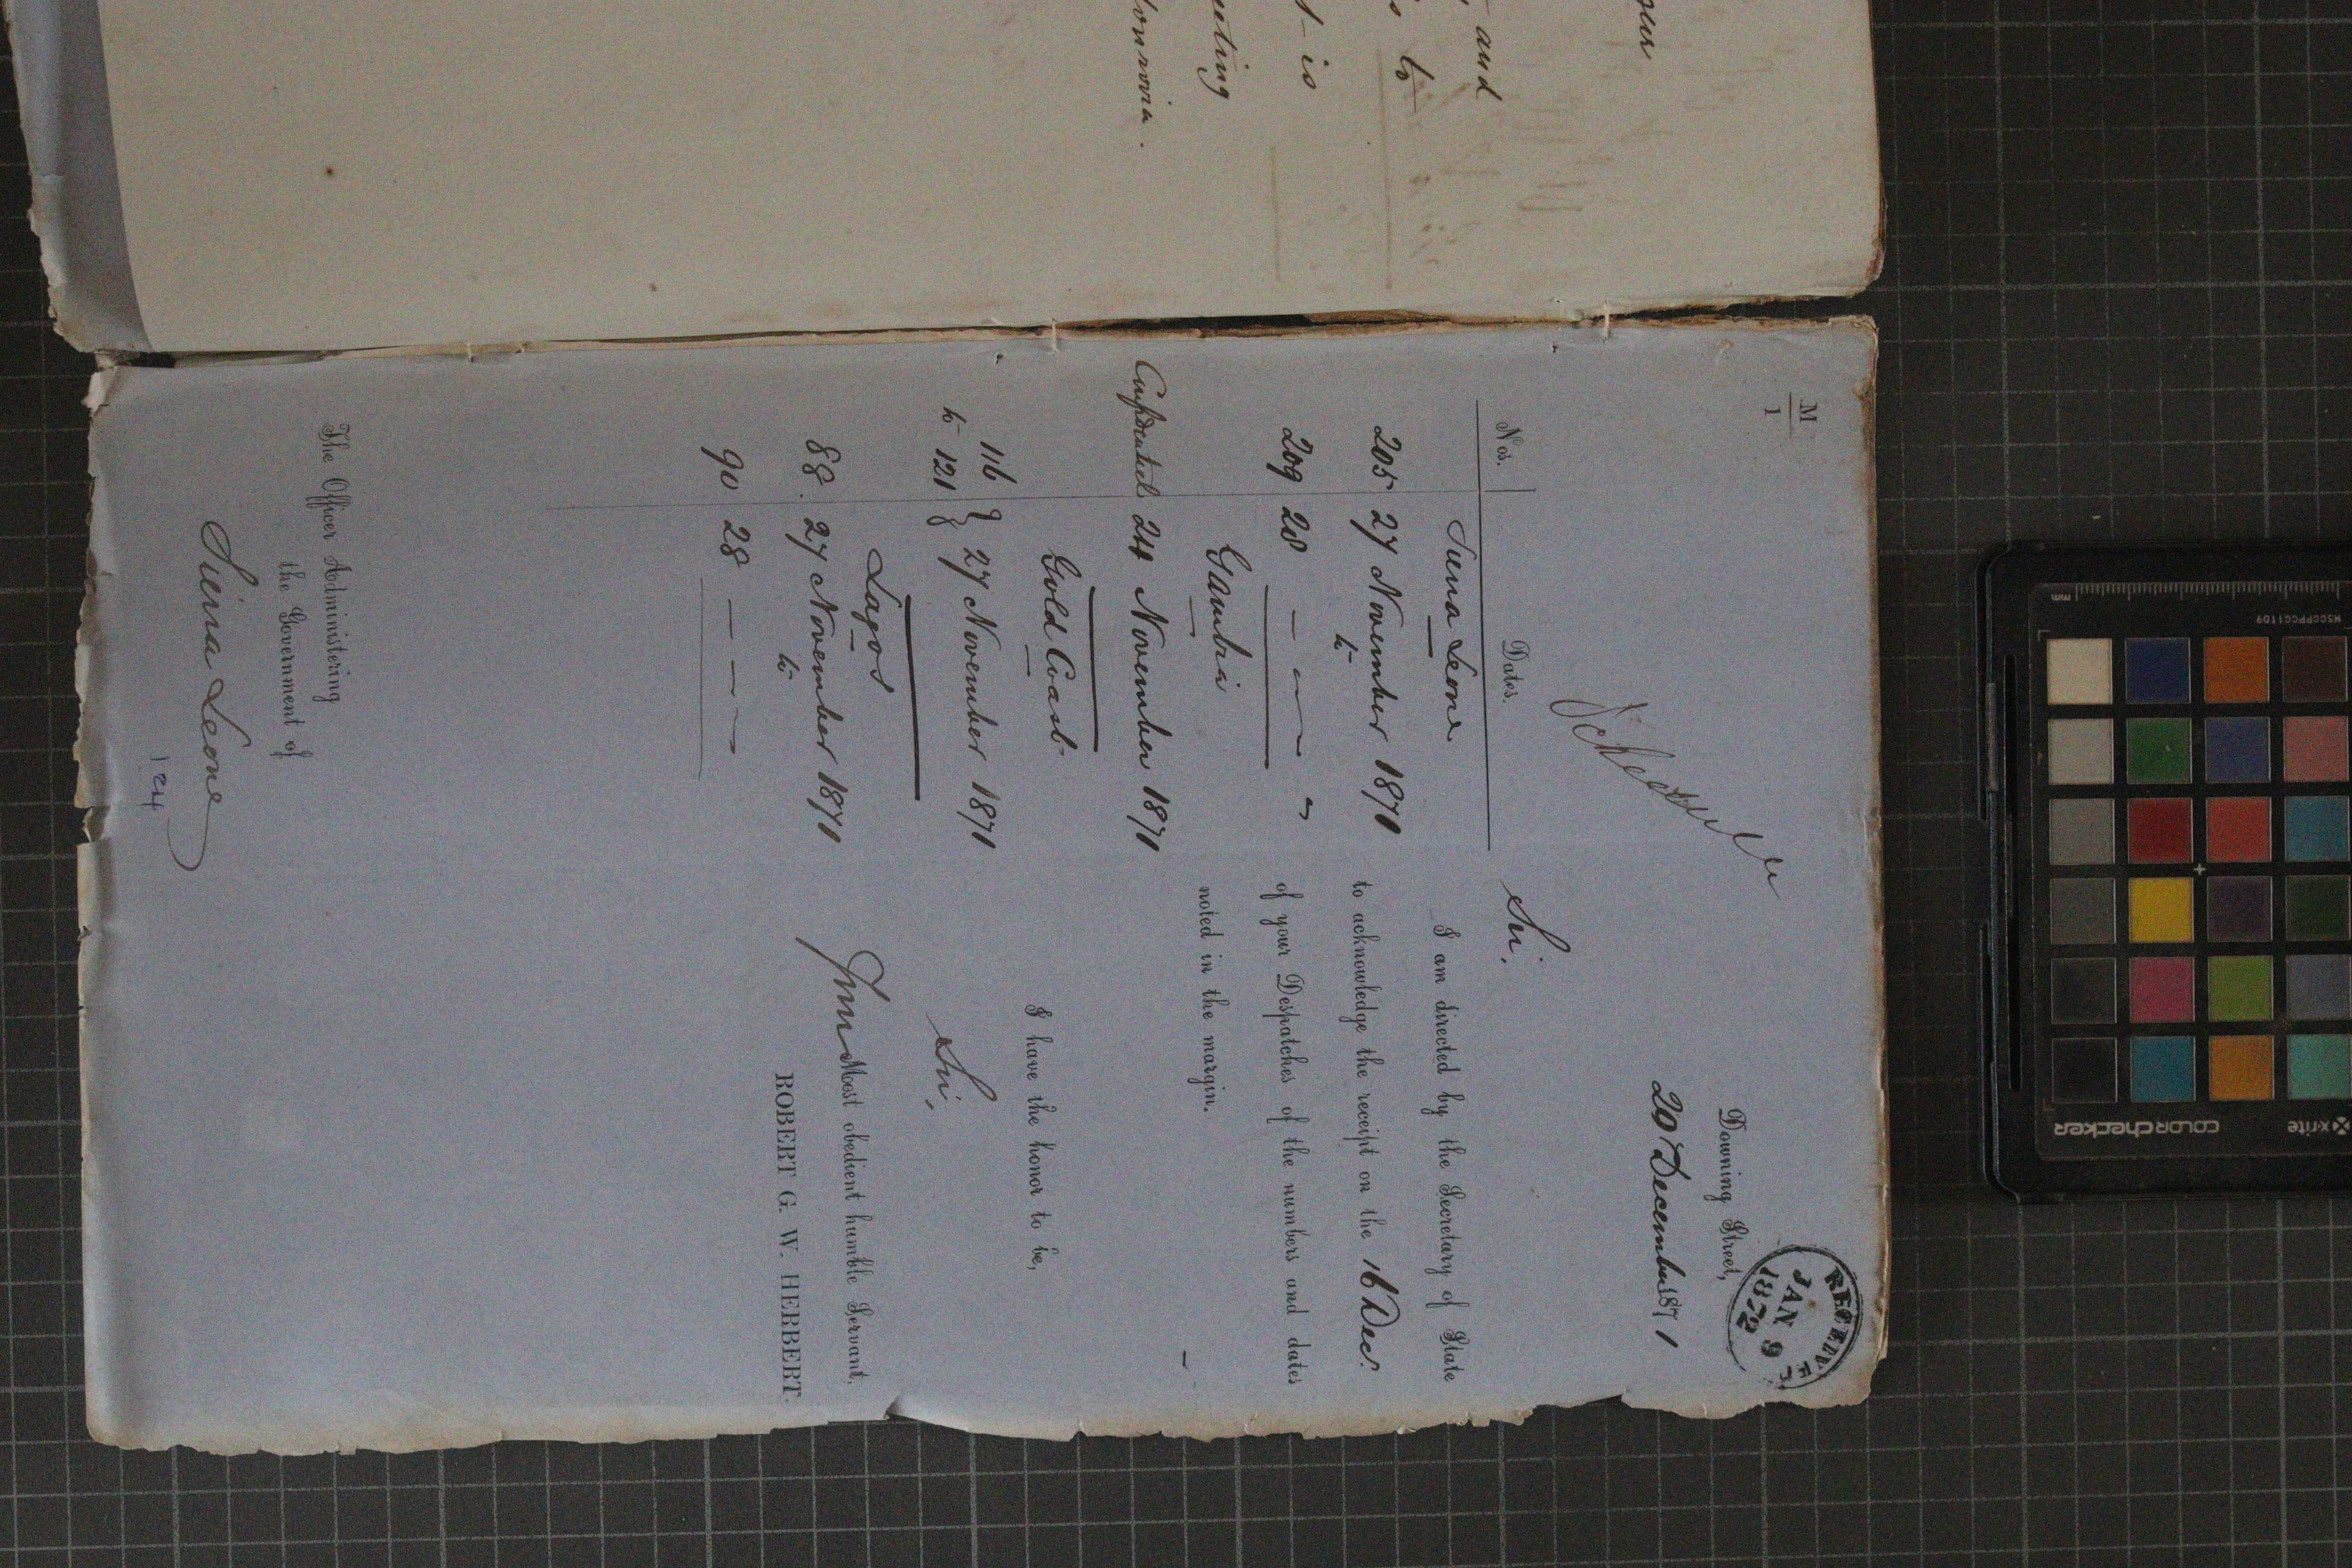 and
is
eeting
onrovia.
M
1
Schedule
RECEIVED
JAN 9
1872
Downing Street,
20 December 1871
Sir,
Nos.
Dates.
Sierra Leone
205 27 November 1871
to
209 28 — " — "
Gambia
Confidential 24 November 1871
Gold Coast
116
to 121 } 27 November 1871
Lagos
88. 27 November 1871
to
90 28 — " —
I am directed by the Secretary of State
to acknowledge the receipt on the 16 Dec.
of your Despatches of the numbers and dates
noted in the margin.
I have the honor to be,
Sir,
Your Most obedient humble Servant,
ROBERT G. W. HERBERT.
The Officer Administering
the Government of
Sierra Leone
124
mm
MSCCPPCC1109
x-rite
COLORchecker